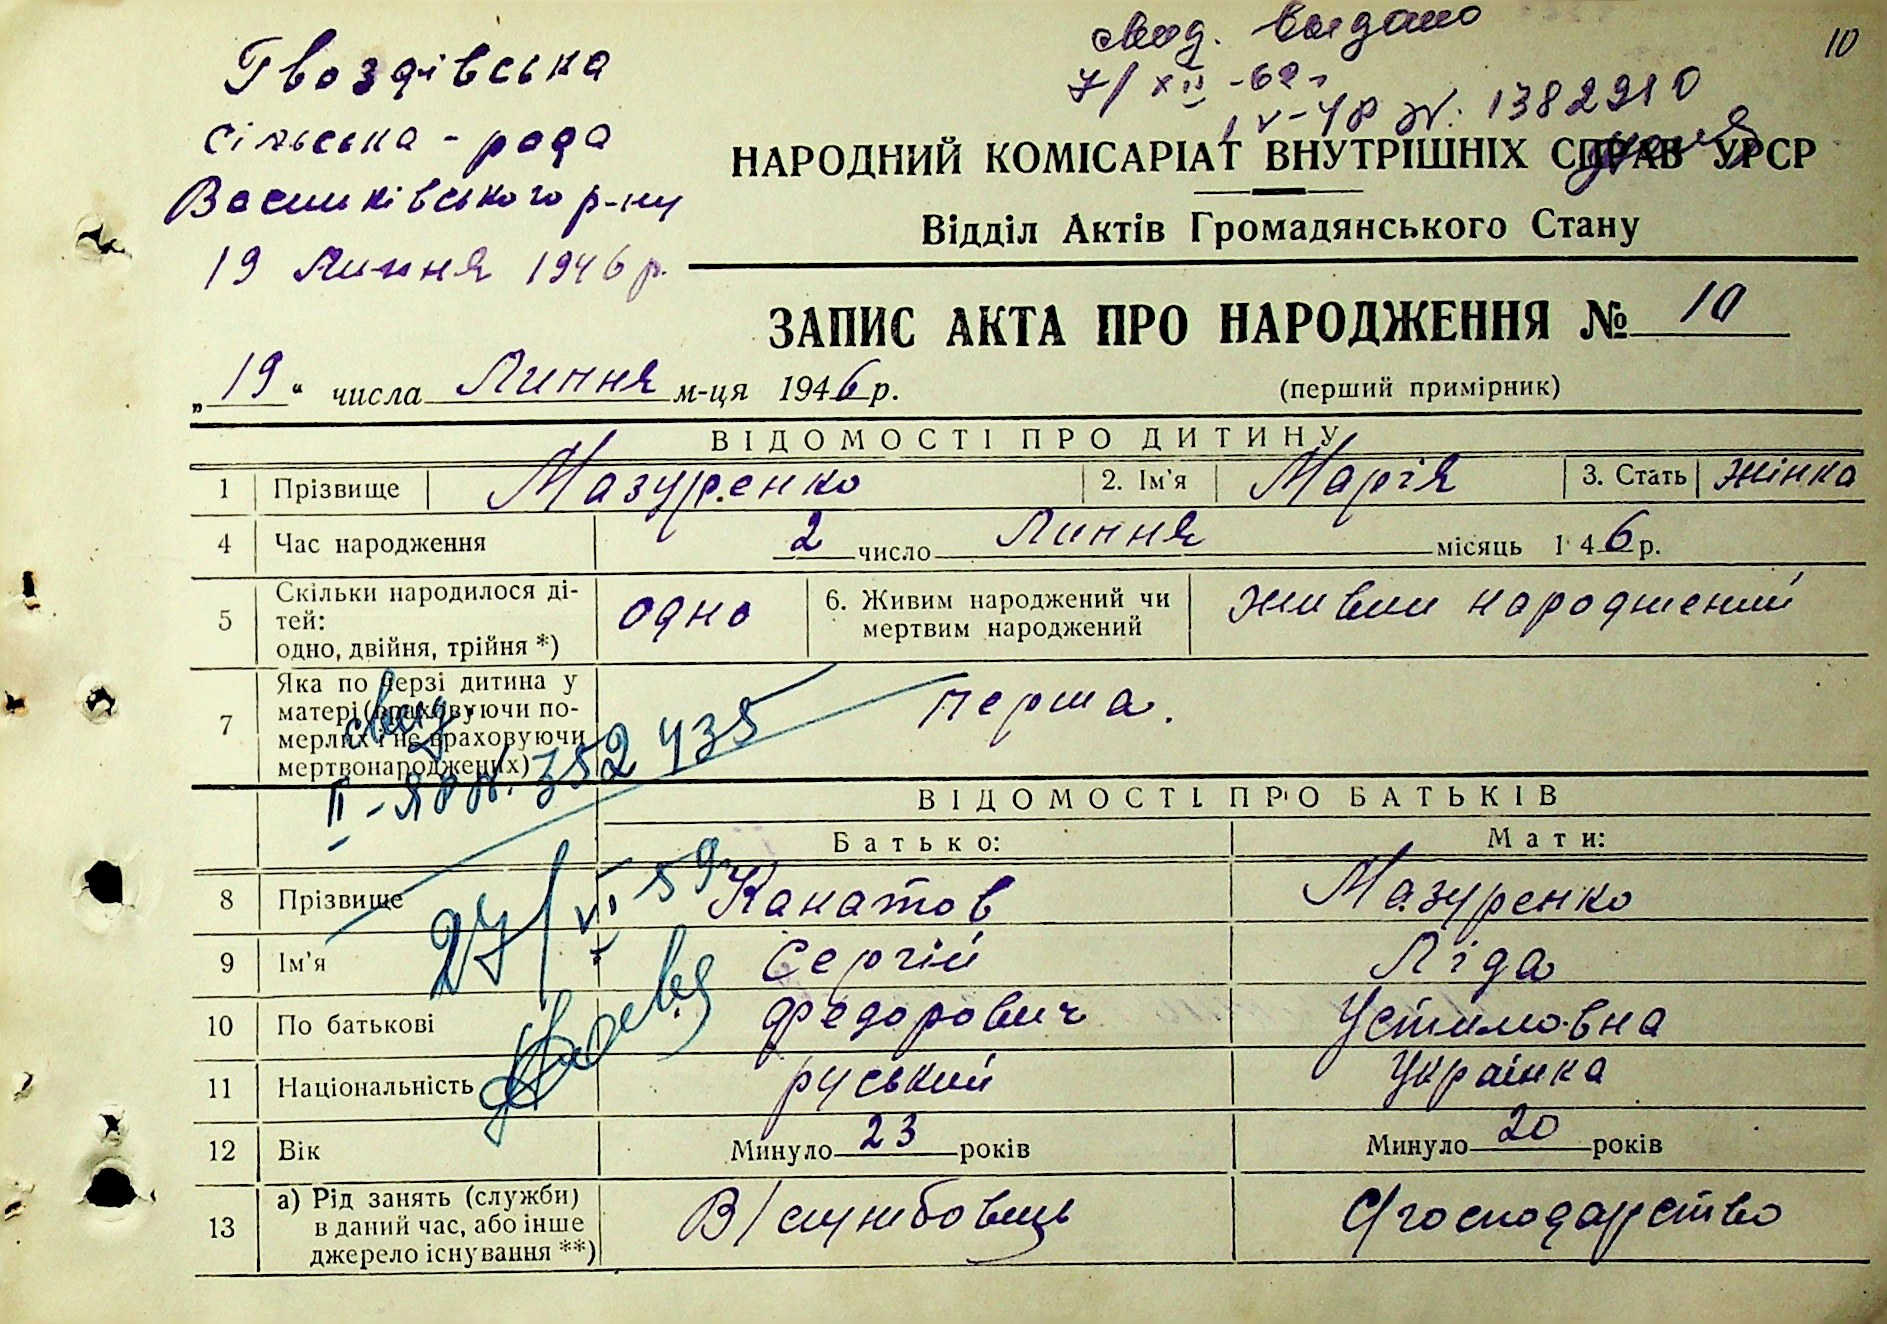 10
свид. выдано
7/XII-62 г
IV-УР № 1382210
Гвоздівська
сільська - рада
Васильківського р-ну
19 Липня 1946 р.
НАРОДНИЙ КОМІСАРІАТ ВНУТРІШНІХ СПРАВ УРСР
Відділ Актів Громадянського Стану
ЗАПИС АКТА ПРО НАРОДЖЕННЯ № 10
„19“ числа Липня м-ця 1946 р.
(перший примірник)
ВІДОМОСТІ ПРО ДИТИНУ
1 Прізвище Мазуренко 2. Ім'я Марія 3. Стать жінка
4 Час народження 2 число Липня місяць 1 46 р.
5 Скільки народилося ді-
тей:
одно, двійня, трійня *) одно 6. Живим народжений чи
мертвим народжений живим народжений
7 Яка по черзі дитина у
матері (враховуючи по-
мерлих і не враховуючи
мертвонароджених) перша.
свид.
II-ЯР №. 352435
27/VI 59 г
ВІДОМОСТІ ПРО БАТЬКІВ
Батько: Мати:
8 Прізвище Канатов Мазуренко
9 Ім'я Сергій Ліда
10 По батькові Федорович Устимовна
11 Національність руський Українка
12 Вік Минуло 23 років Минуло 20 років
13 а) Рід занять (служби)
в даний час, або інше
джерело існування **) В/службовець С/господарство